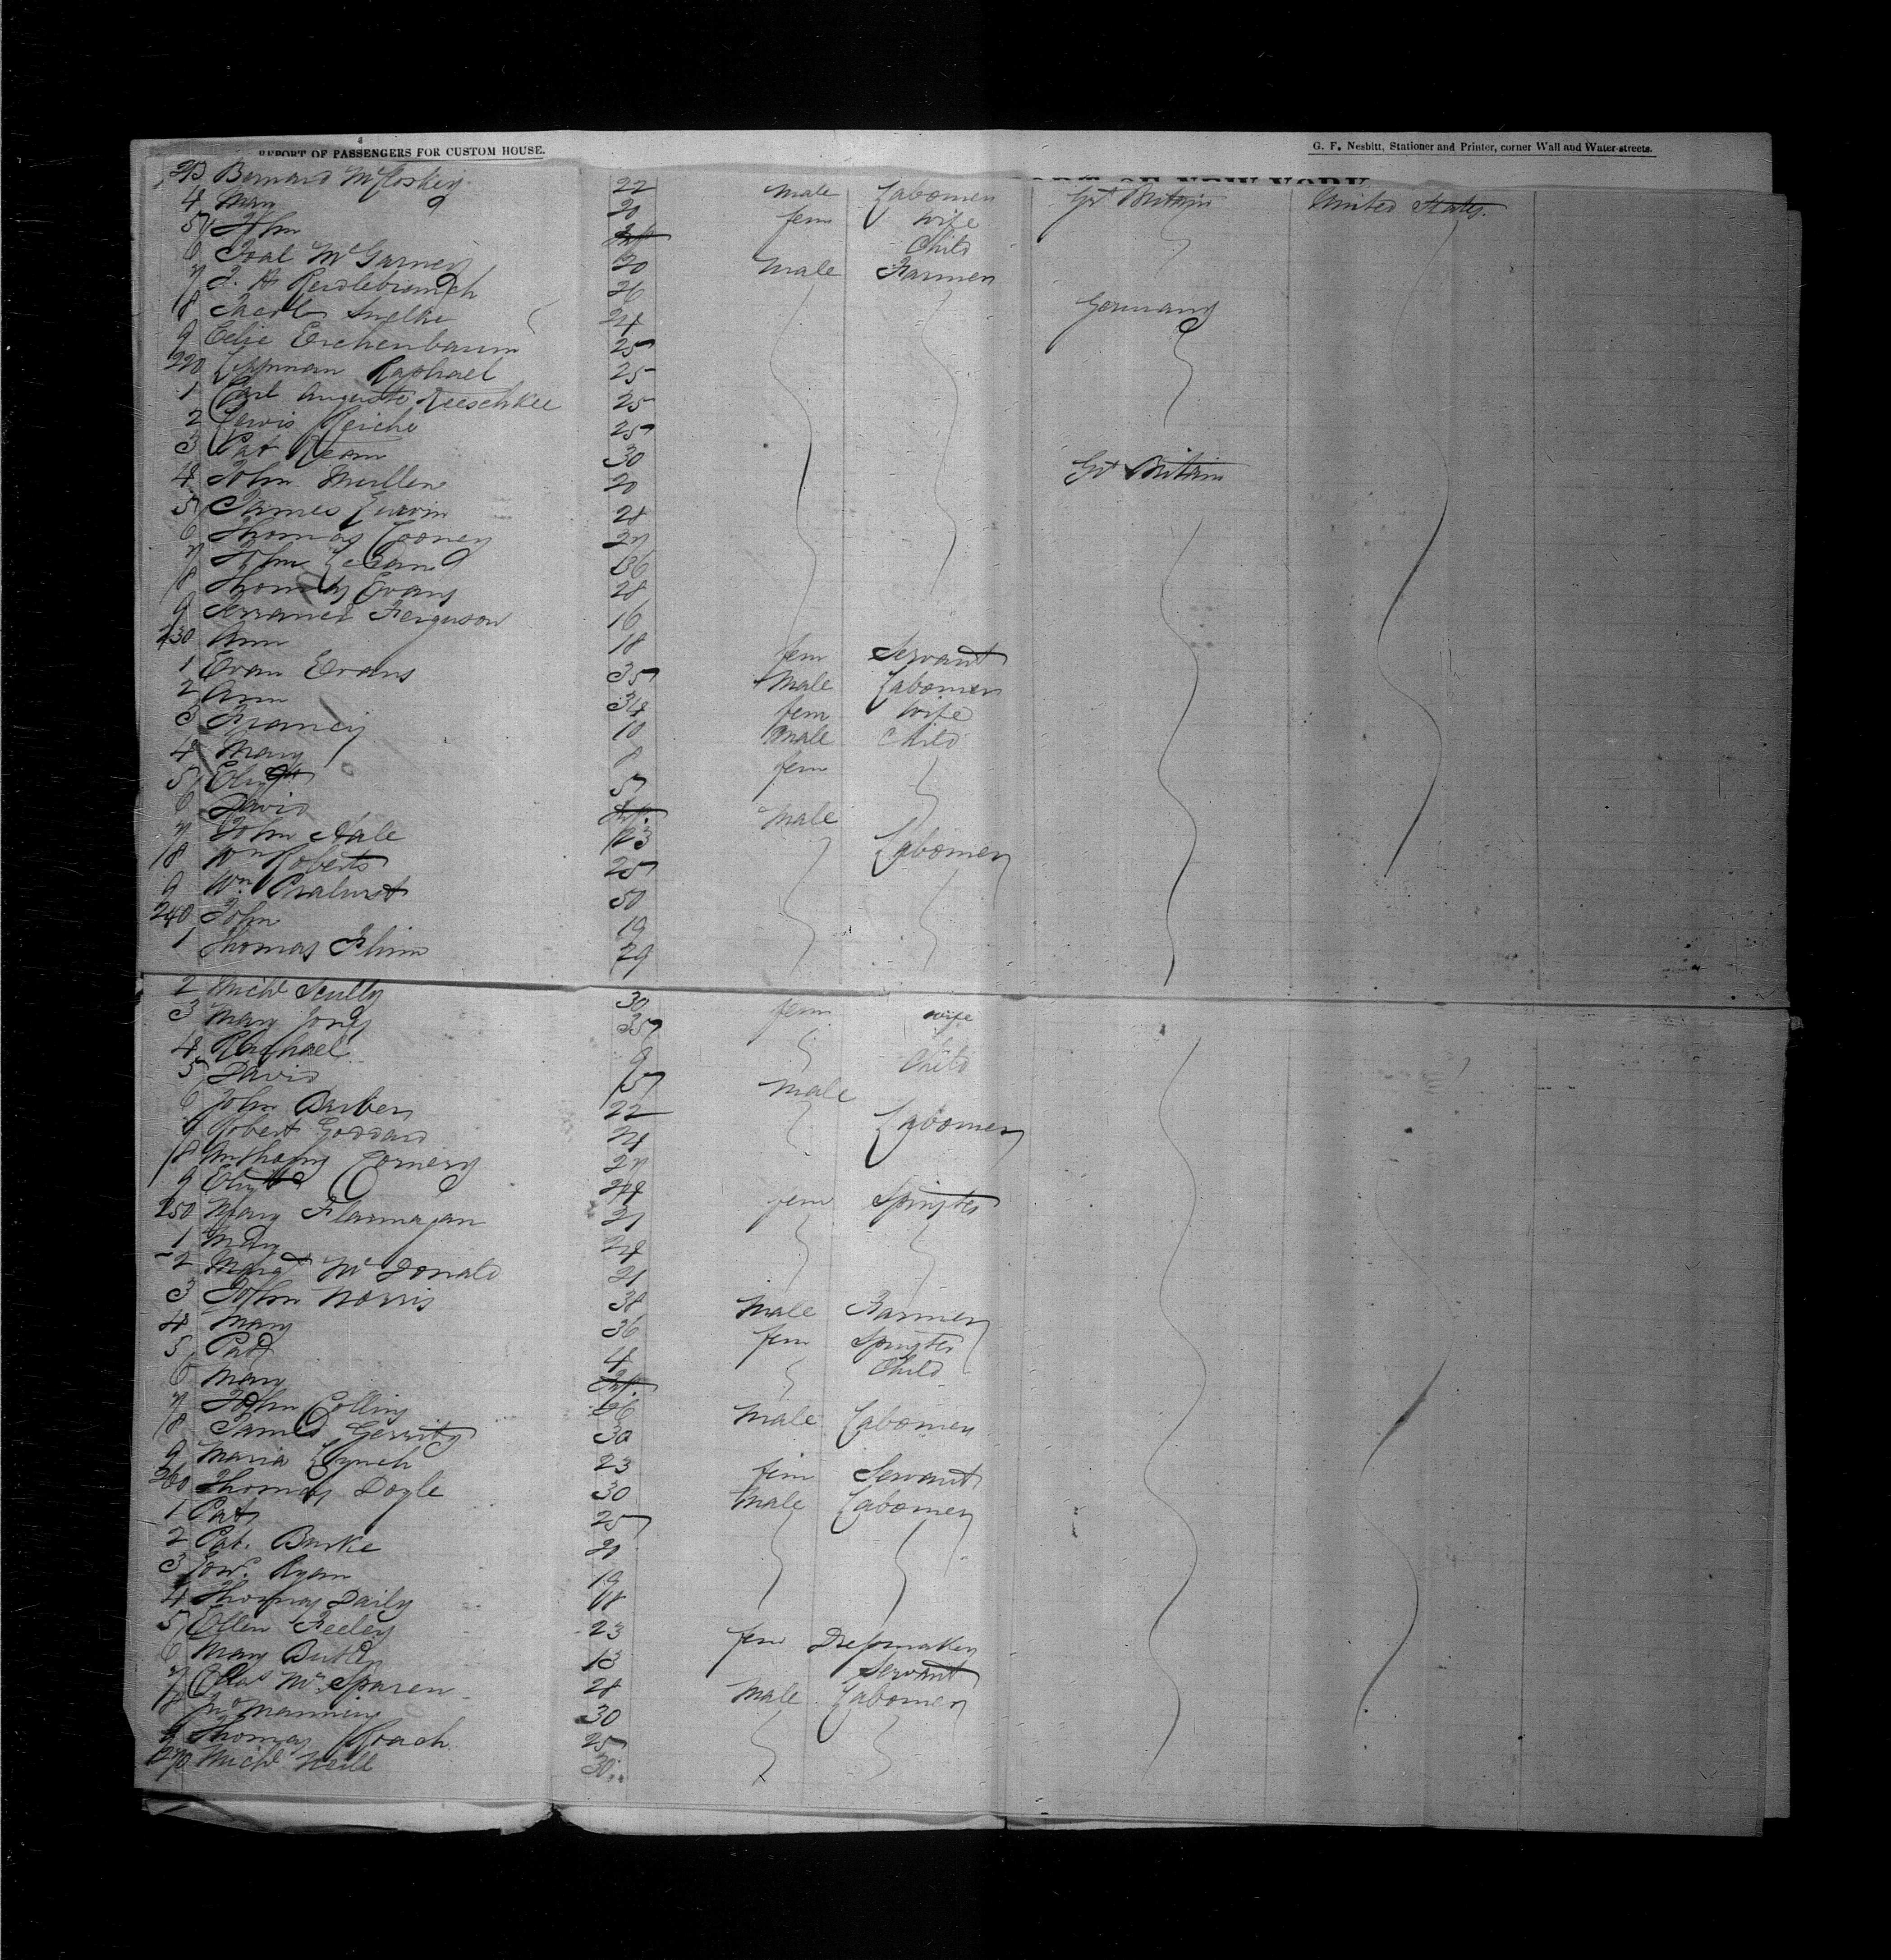 REPORT OF PASSENGERS FOR CUSTOM HOUSE.
G. F. Nesbitt, Stationer and Printer, corner Wall and Water-streets.
213 Bernard McCloskey 22 Male Labourer Gt Britain United States.
4 Mary 20 fem Wife
5 John Inf Child
6 Toal McGarvey 20 Male Farmer
7 26
8 Jacob 24 Germany
9 Celie Eichenbaum 25
220 Lippman Raphael 25
1 Carl Auguste 25
2 Lewis Reiche 25
3 Pat 30 Gt Britain
4 John Mullen 20
5 James 28
6 Thomas Cooney 27
7 John 36
8 Thomas Evans 28
9 Ferguson 16
230 Ann 18 fem Servant
1 Evan Evans 35 Male Labourer
2 Ann 34 fem Wife
3 Francis 10 Male Child
4 Mary 8 fem
5 Elizth 5
6 David Inf. Male
7 John Hale 23 Labourer
8 Wm Roberts 25
9 Wm 50
240 John 19
1 Thomas Flinn 29
2 Michl Scully 30
3 Mary Jones 35 fem wife
4 Rachael 9 Child
5 David 5 Male
6 John Barber 22 Labourer
7 Robert Goddard 21
8 Anthony 27
9 Elizth 24 fem Spinster
250 Mary Flannagan 21
1 Mary 24
2 Margt McDonald 21
3 John Norris 38 Male Farmer
4 Mary 36 fem Spinster
5 Pat 4 Child
6 Mary Inf.
7 John Collins 26 Male Labourer
8 James Gerrity 30
9 Maria Lynch 23 fem Servant
260 Thomas Doyle 30 Male Labourer
1 Pat 25
2 Pat. Burke 21
3 Edwd. Ryan 19
4 Thomas Daily 18
5 Ellen Feeley 23 fem Dressmaker
6 Mary Butler 13 Servant
7 Chas McSparen 28 Male Labourer
8 Jno Manning 30
9 Thomas Roach 25
270 Michl Neill 30